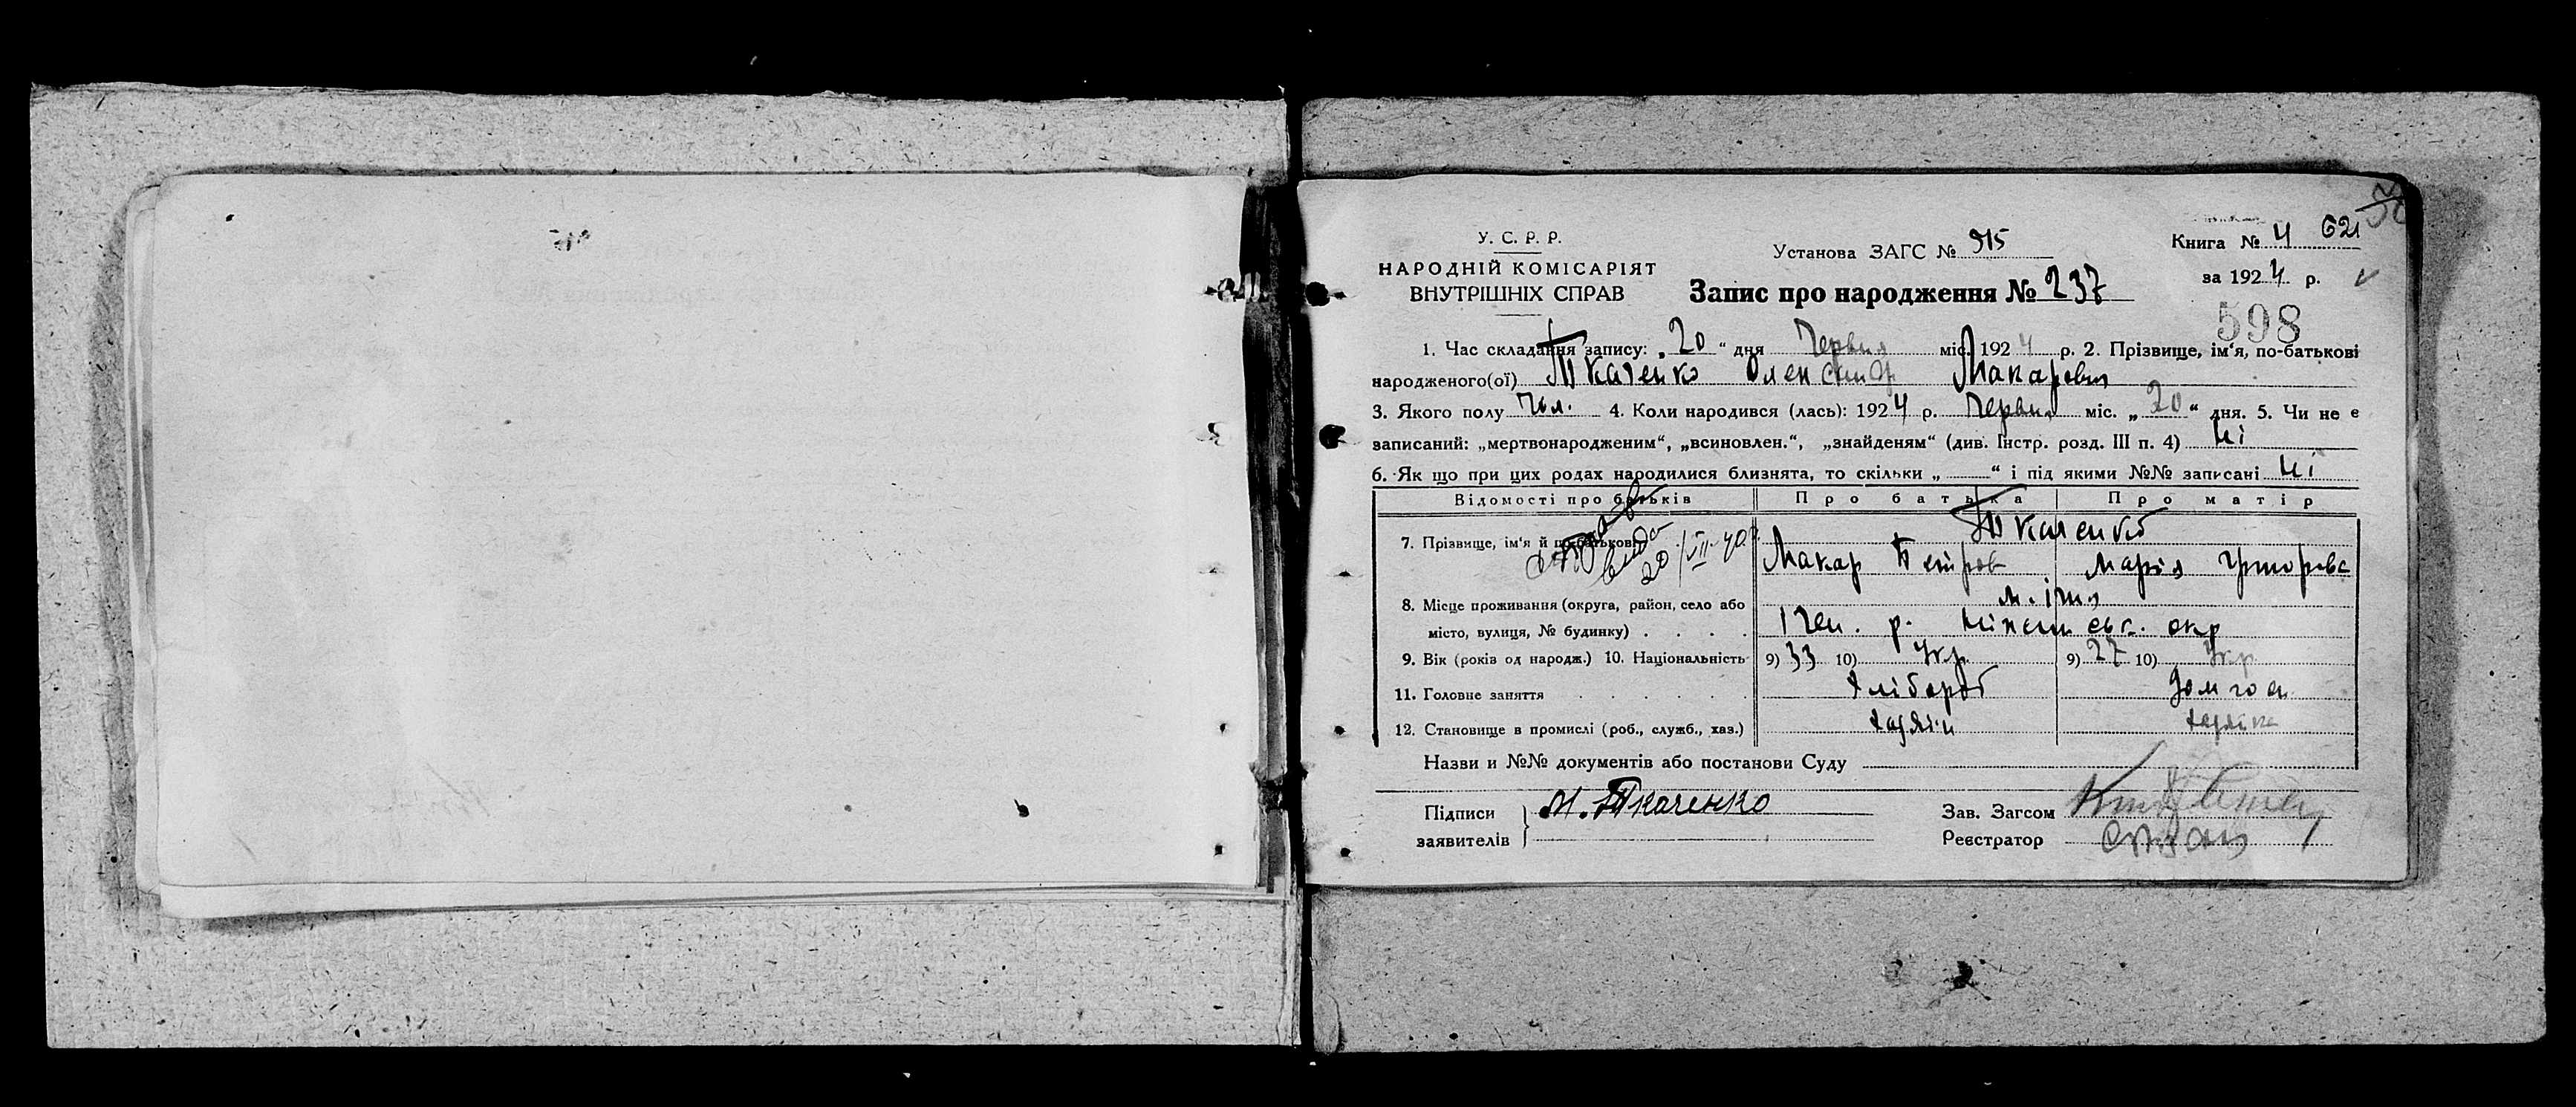 У. С. Р. Р.
НАРОДНІЙ КОМІСАРІЯТ
ВНУТРІШНІХ СПРАВ
Установа ЗАГС № 915
Книга № 4 621
за 1924 р.
Запис про народження № 237
598
1. Час складання запису: „20“ дня Червня міс. 1924 р. 2. Прізвище, ім‘я, по-батькові
народженого(ої) Ткаченко Олександр Макарович
3. Якого полу Чол. 4. Коли народився (лась): 1924 р. Червня міс. „20“ дня. 5. Чи не є
записаний: „мертвонародженим“, „всиновлен.“, „знайденям“ (див. Інстр. розд. III п. 4) ні
6. Як що при цих родах народилися близнята, то скільки „ “ і під якими №№ записані ні
Відомості про батьків Про батька Про матір
7. Прізвище, ім‘я й по-батькові Ткаченко
20/VII-40
Макар Петров Марія Григоровa
8. Місце проживання (округа, район, село або м. Ічня
місто, вулиця, № будинку) Ічен. р. Ніженськ. окр
9. Вік (років од народж.) 10. Національність 9) 33 10) Укр. 9) 27 10) Укр.
11. Головне заняття Хлібороб Домгосп
12. Становище в промислі (роб., служб., хаз.) хазяїн
Назви и №№ документів або постанови Суду
Підписи М. Ткаченко Зав. Загсом
заявителів Реєстратор